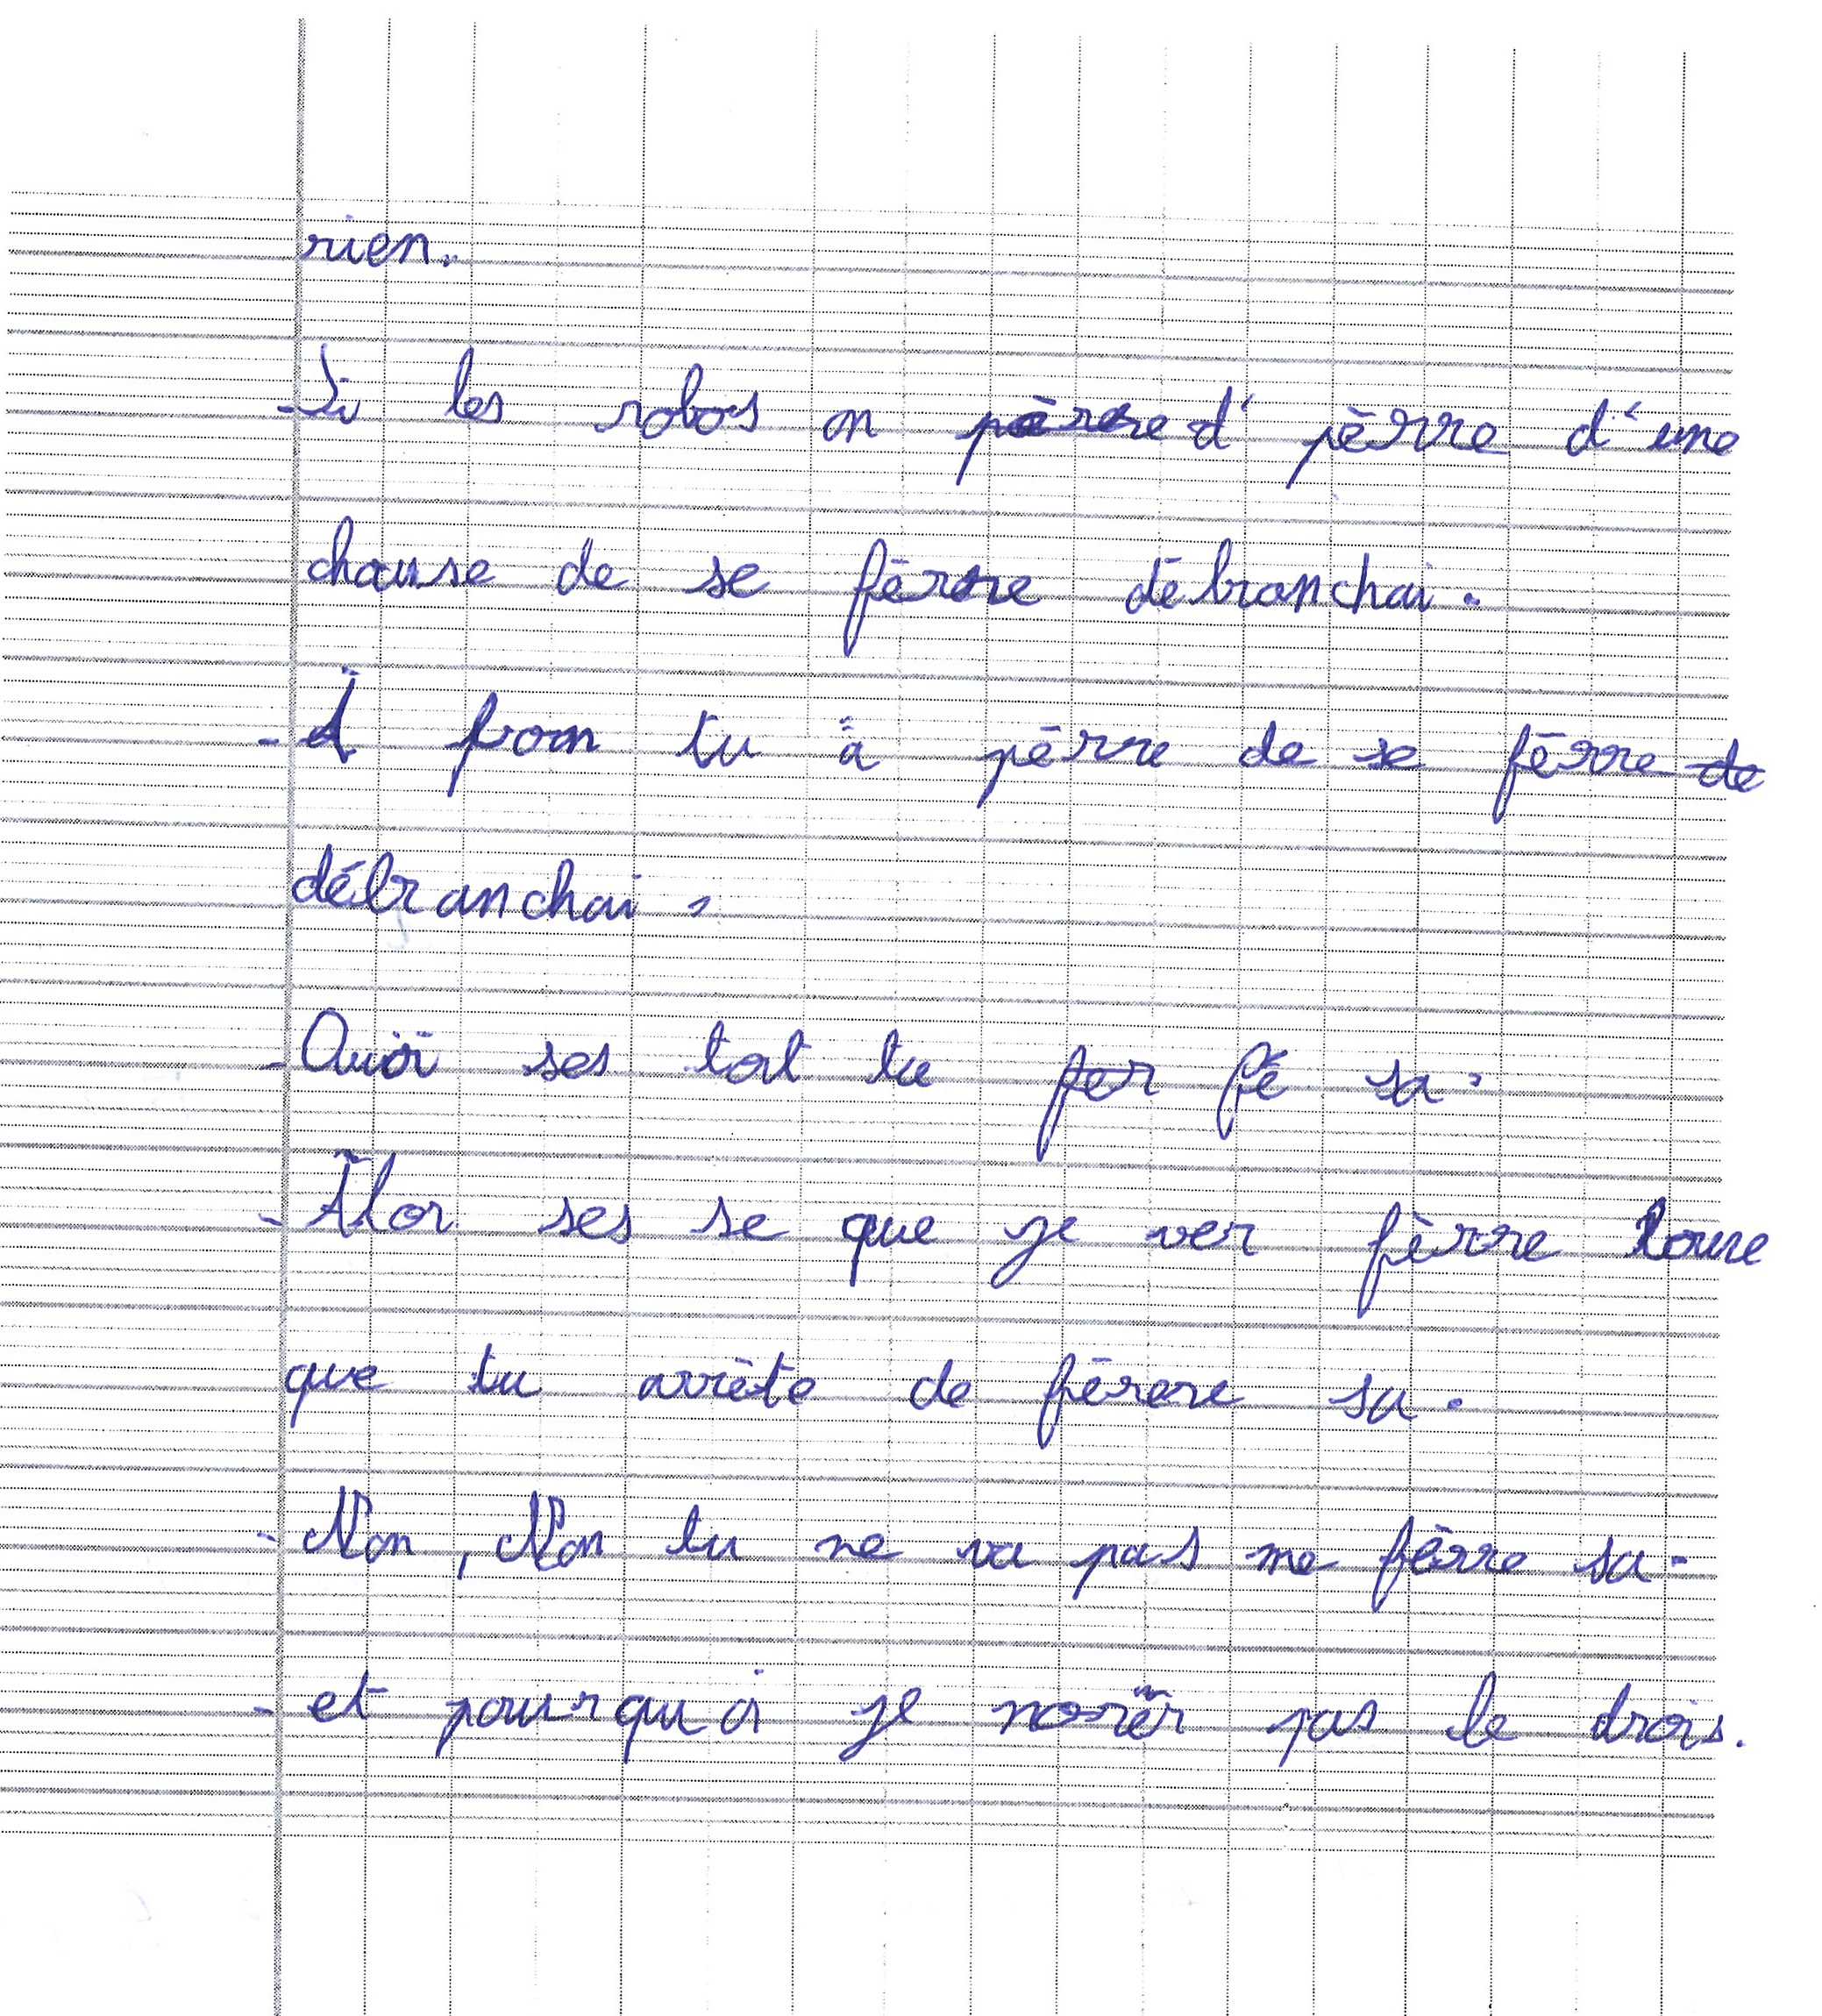 rien.
-Si les robos on pèrre d' pèrre d'une
chause de se fèrre débranchai.
-A foon tu à pèrre de se fèrre de
débranchai,
-Ouoi ses tot tu fer fé sa.
-Alor ses se que je ver fèrre
que tu arrète de fèrere sa.
-Non, Non tu ne va pas me fèrre sa.
-et pourquoi je pas le drois.